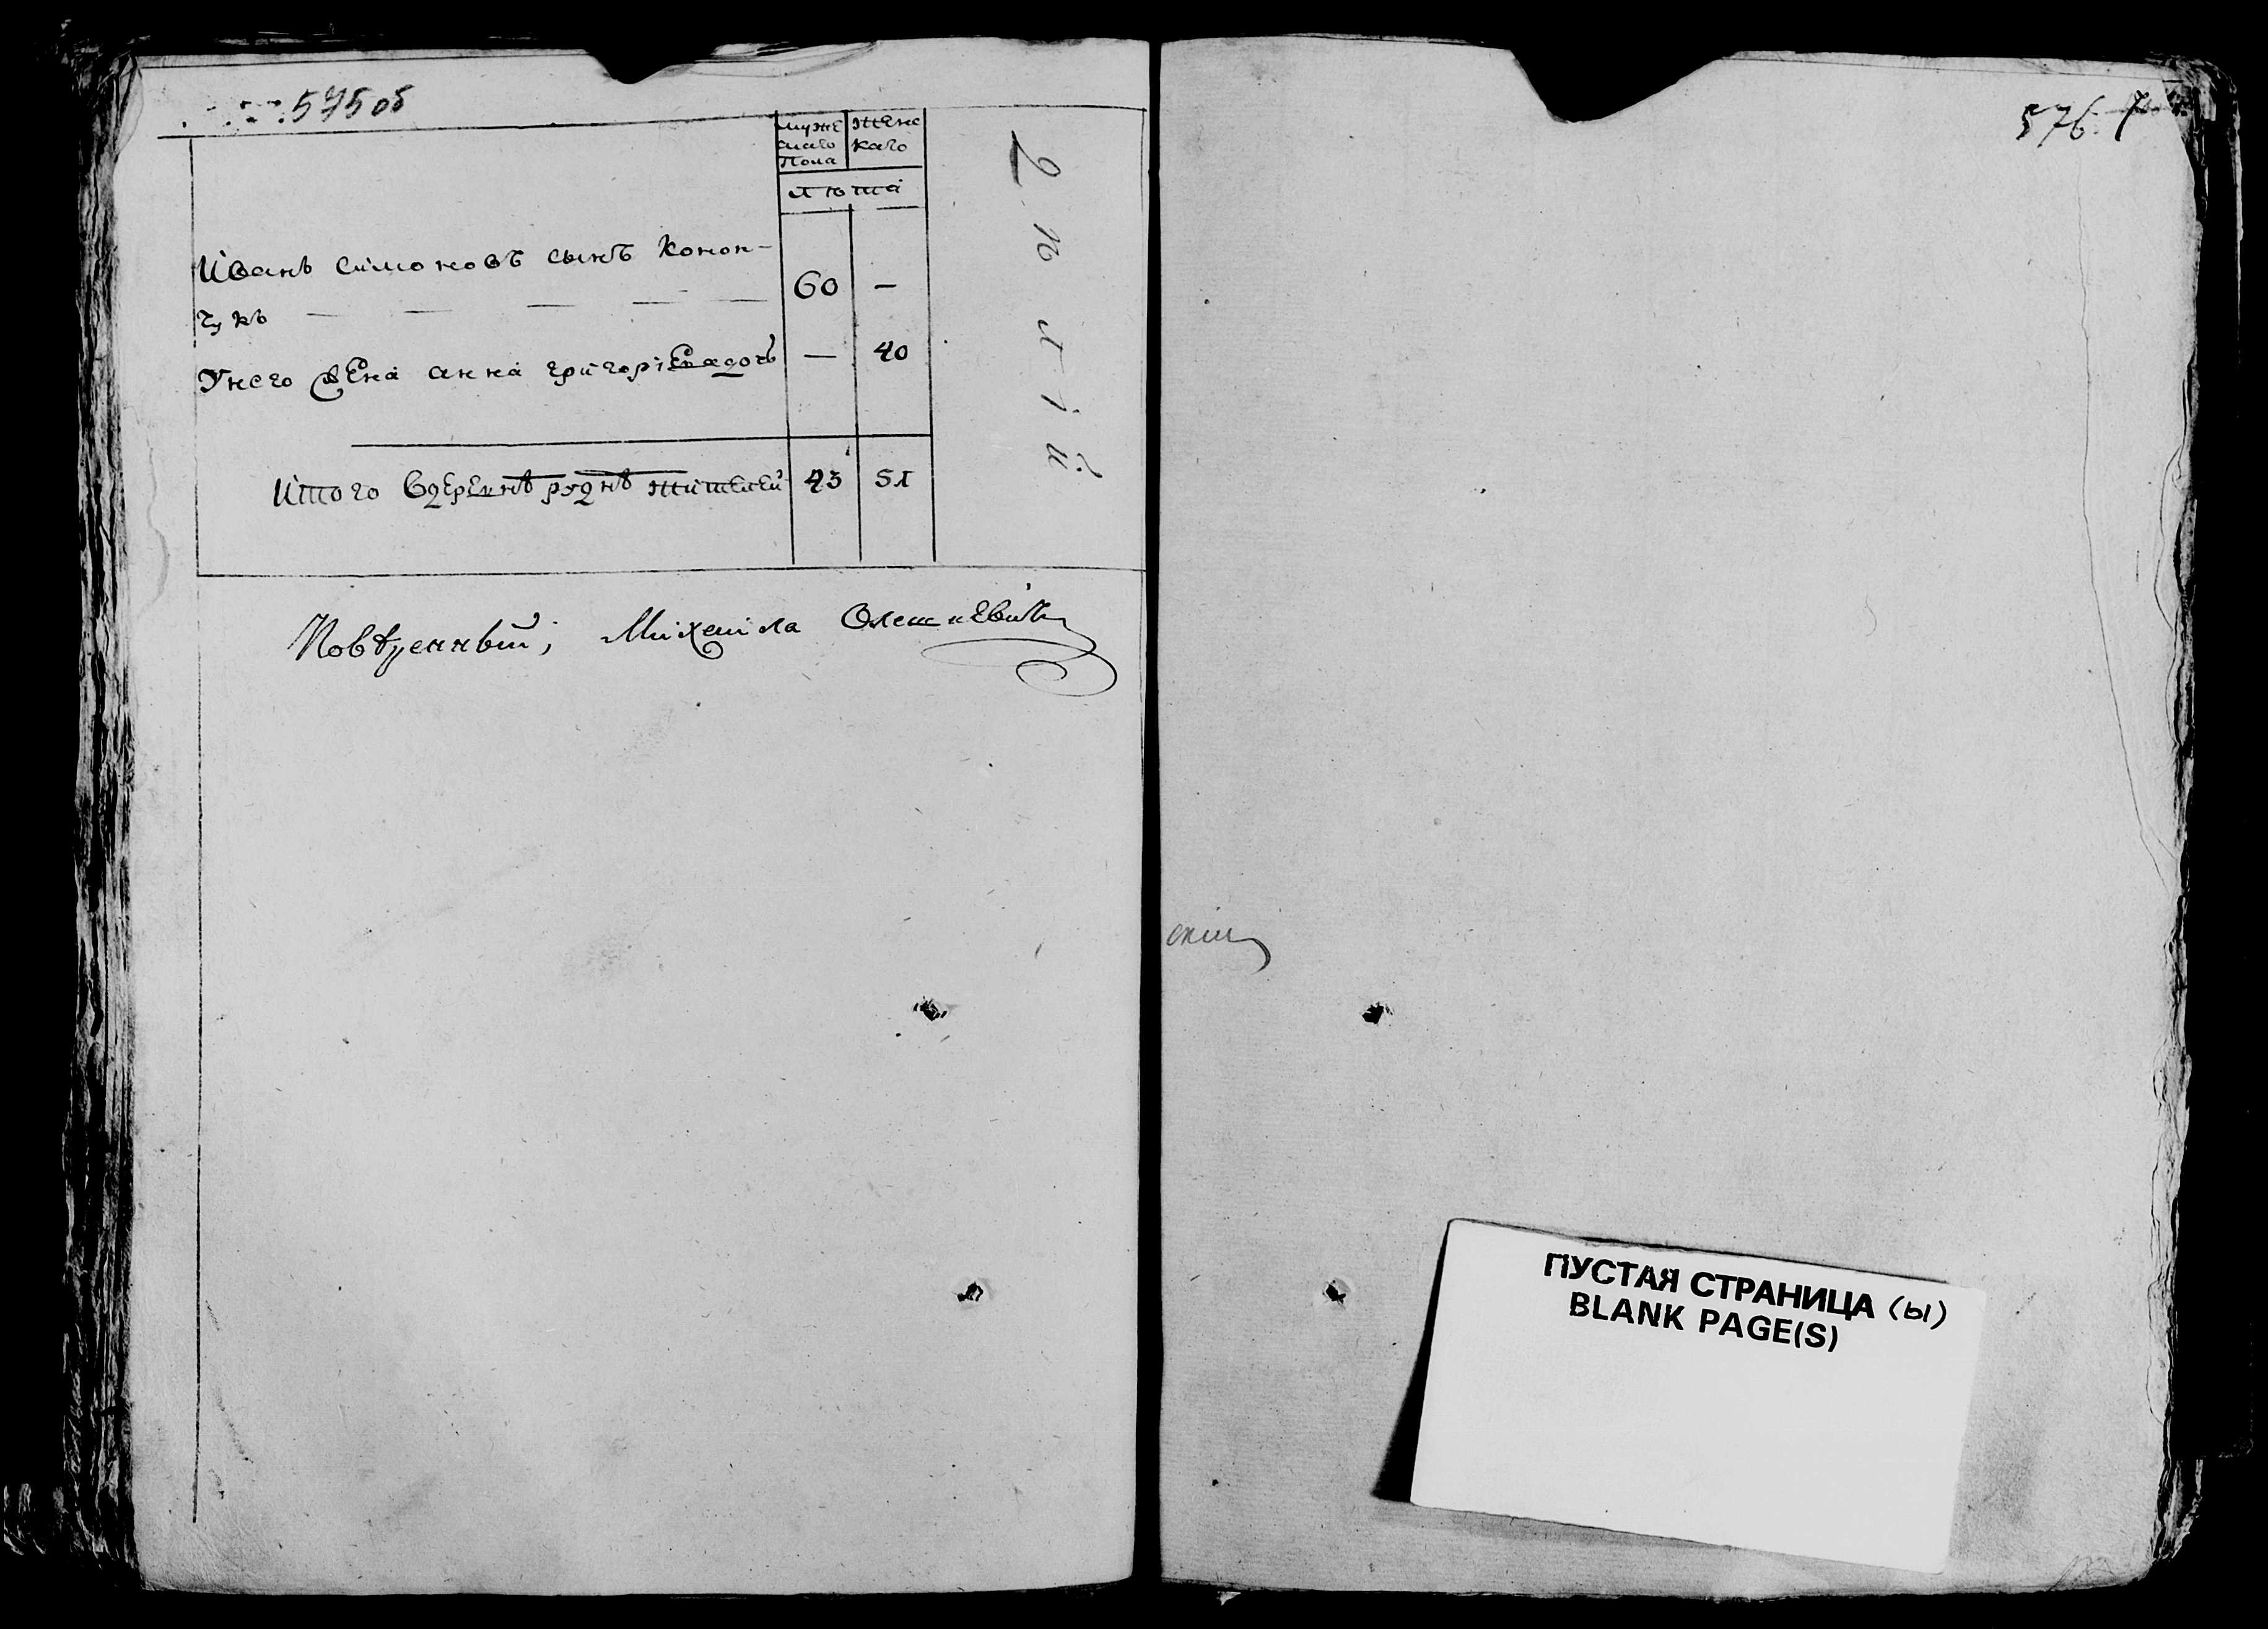 575 об
муже
скаго
Пола
жене
каго
лѣта
Иванъ Симоновъ сынъ Конон-
чукъ — — — — —
60 —
Унего жена анна григоріева дочь
— 40
Итого вдеревнѣ руднѣ жителей 43 51
Повѣренный; Михайла
576
скій
ПУСТАЯ СТРАНИЦА (Ы)
BLANK PAGE(S)